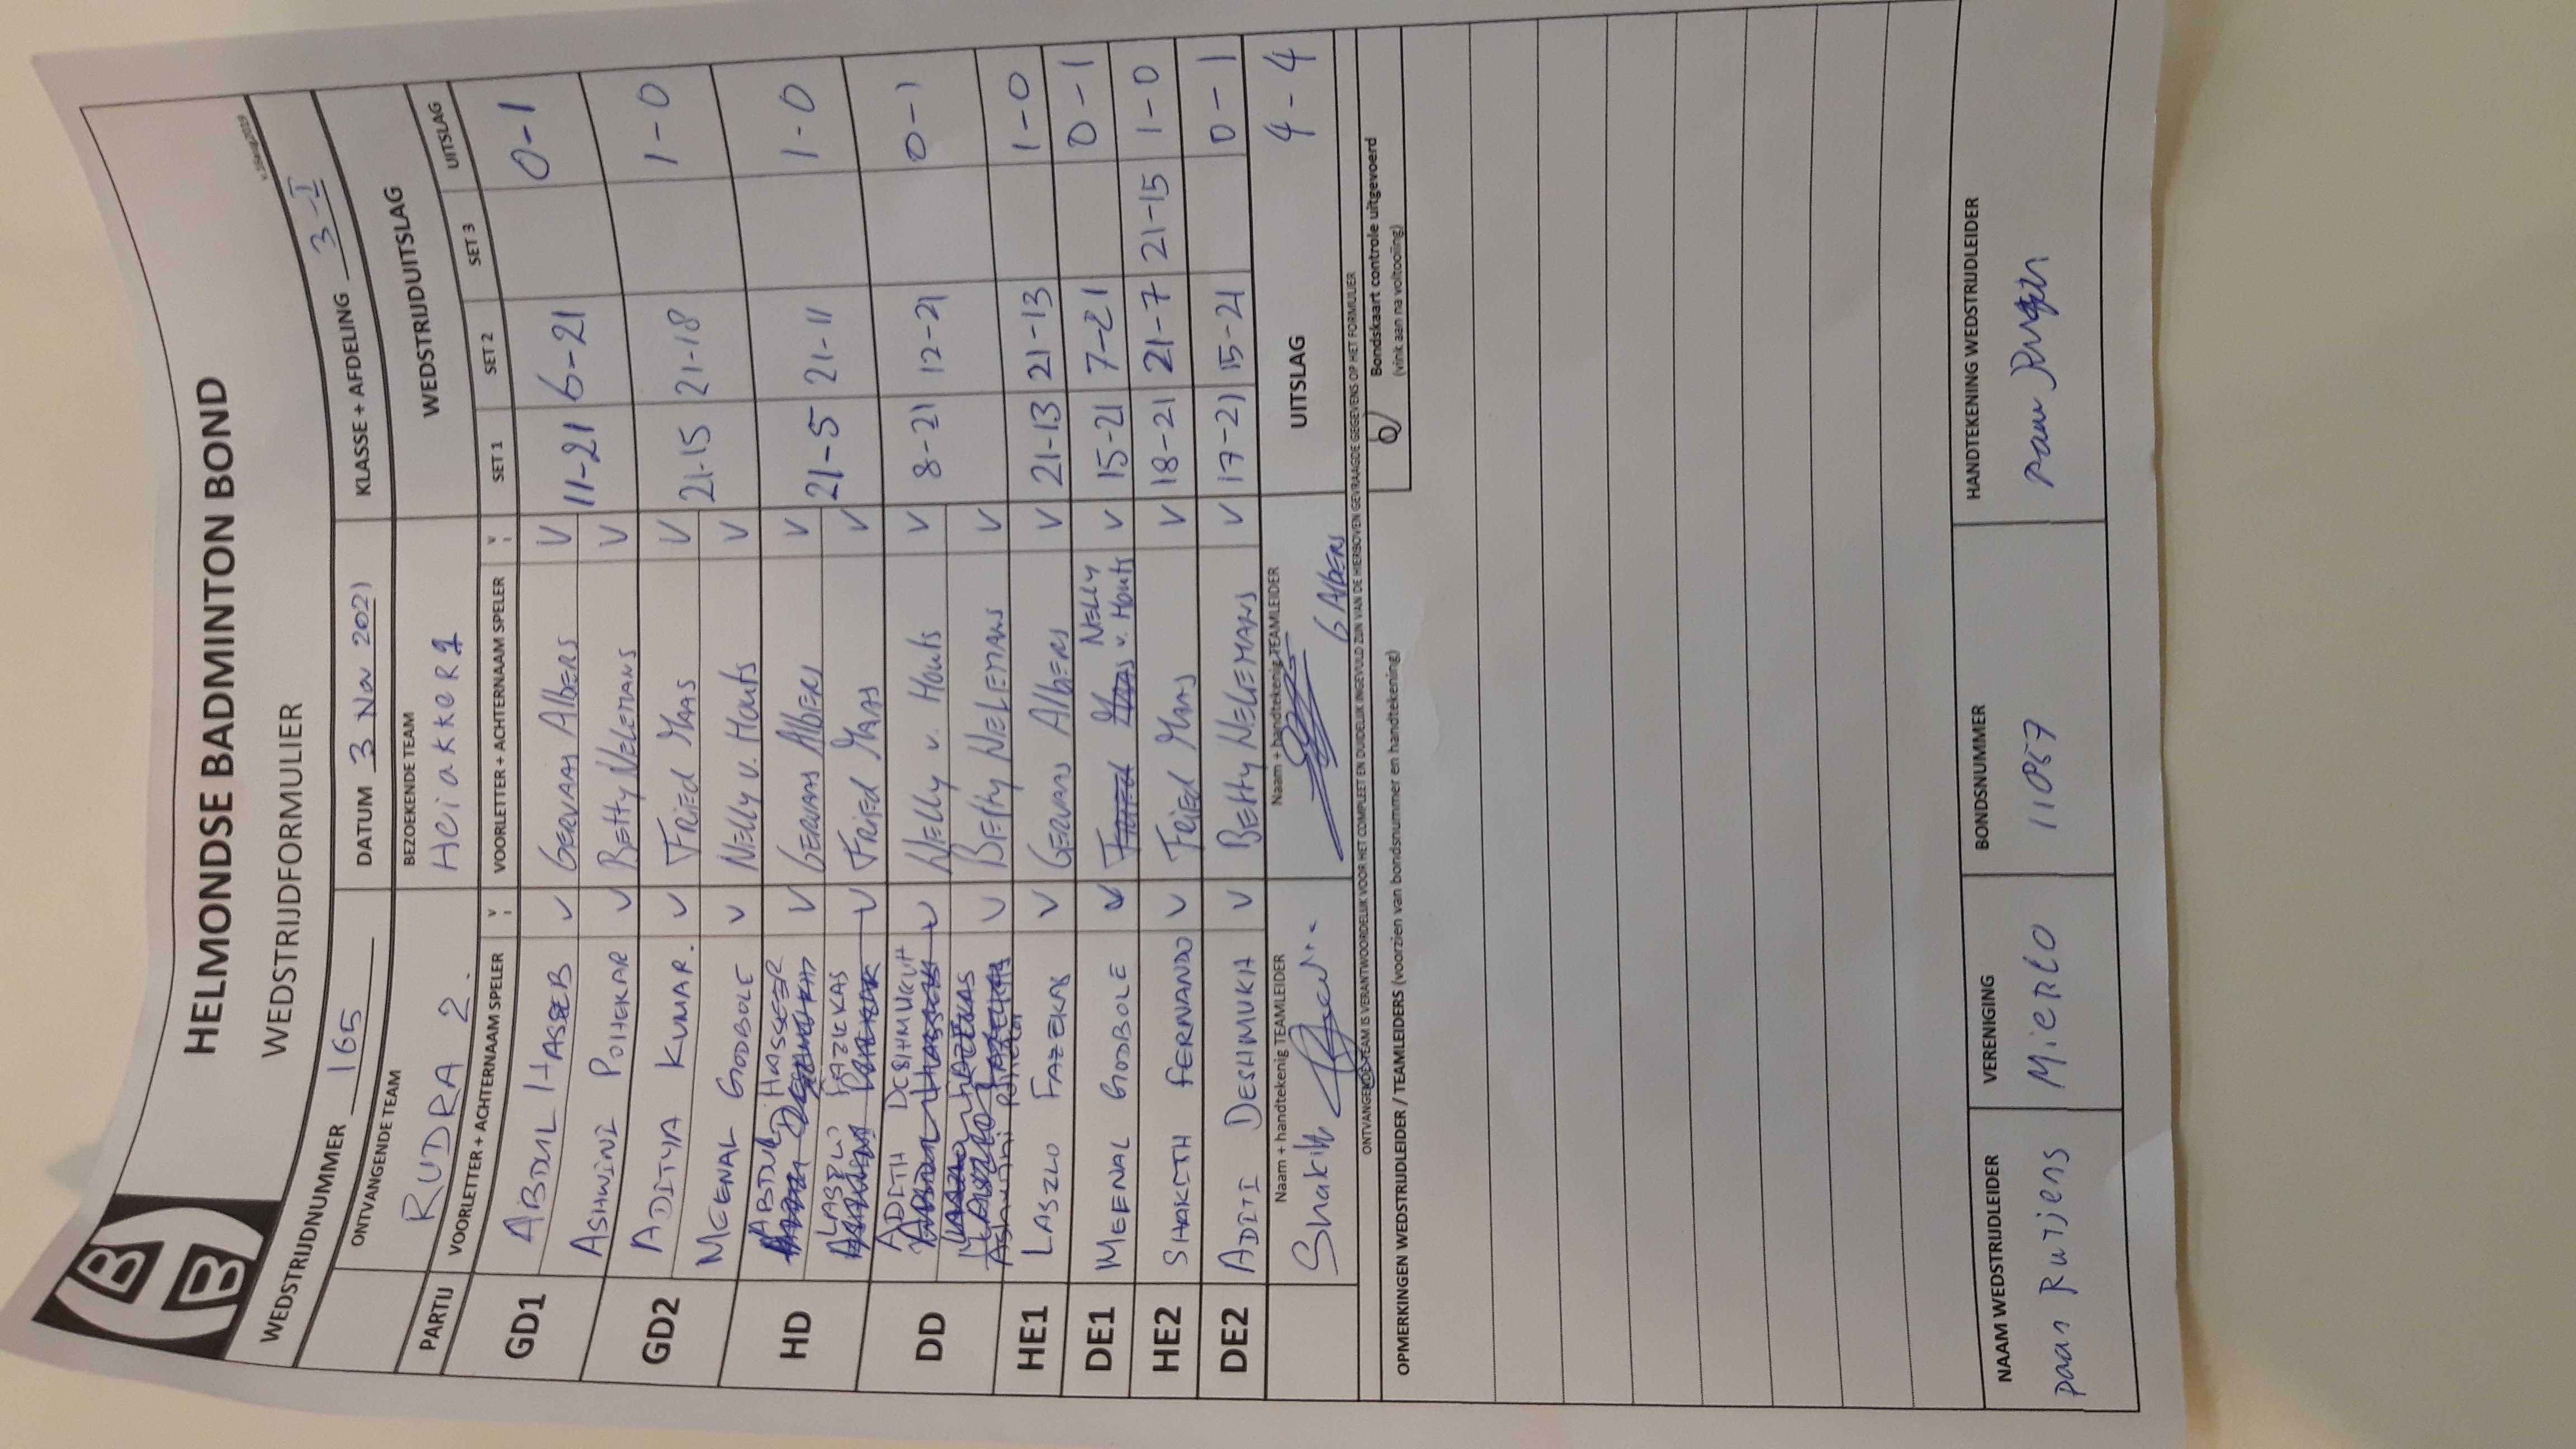 HELMONDSE BADMINTON BOND
WEDSTRIJDFORMULIER
v.1Wang2019
WEDSTRIJDNUMMER 165 DATUM 3 Nov 2021 KLASSE + AFDELING 3-I
ONTVANGENDE TEAM BEZOEKENDE TEAM WEDSTRIJDUITSLAG
RUDRA 2. HeiakkeR 1
PARTIJ VOORLETTER + ACHTERNAAM SPELER V VOORLETTER + ACHTERNAAM SPELER V SET 1 SET 2 SET 3 UITSLAG
GD1 ABDUL HASEEB V GERVAAS AlbERS V 11-21 6-21 0-1
ASHWINI POHEKAR V BEtty NELEMANS V
GD2 ADITYA KUMAR. V FRIEd MAAS V 21-15 21-18 1-0
MEENAL GODBOLE V NElly v. Houts V
HD ABDUL HASSEER V GERVAAS AlbERS V 21-5 21-11 1-0
LASZLO FAZEKAS V FRIEd MAAS V
DD ADITI DESHMUKH V NElly v. Houts V 8-21 12-21 0-1
Ashwini Pohekar V BEtty NELEMANS V
HE1 LASZLO FAZEKAS V GERVAAS AlbERS V 21-13 21-13 1-0
DE1 MEENAL GODBOLE V NELLY v. Houts V 15-21 7-21 0-1
HE2 SHAKITH FERNANDO V FRIEd MAAS V 18-21 21-7 21-15 1-0
DE2 ADITI DESHMUKH V BEtty NELEMANS V 17-21 15-21 0-1
Naam + handtekenig TEAMLEIDER Naam + handtekenig TEAMLEIDER UITSLAG 4-4
Shakith G AlbERS
ONTVANGENDE TEAM IS VERANTWOORDELIJK VOOR HET COMPLEET EN DUIDELIJK INGEVULD ZIJN VAN DE HIERBOVEN GEVRAAGDE GEGEVENS OP HET FORMULIER
Bondskaart controle uitgevoerd
(vink aan na voltooiing)
OPMERKINGEN WEDSTRIJDLEIDER / TEAMLEIDERS (voorzien van bondsnummer en handtekening)
NAAM WEDSTRIJDLEIDER VERENIGING BONDSNUMMER HANDTEKENING WEDSTRIJDLEIDER
paan Rutjens Mierlo 11057